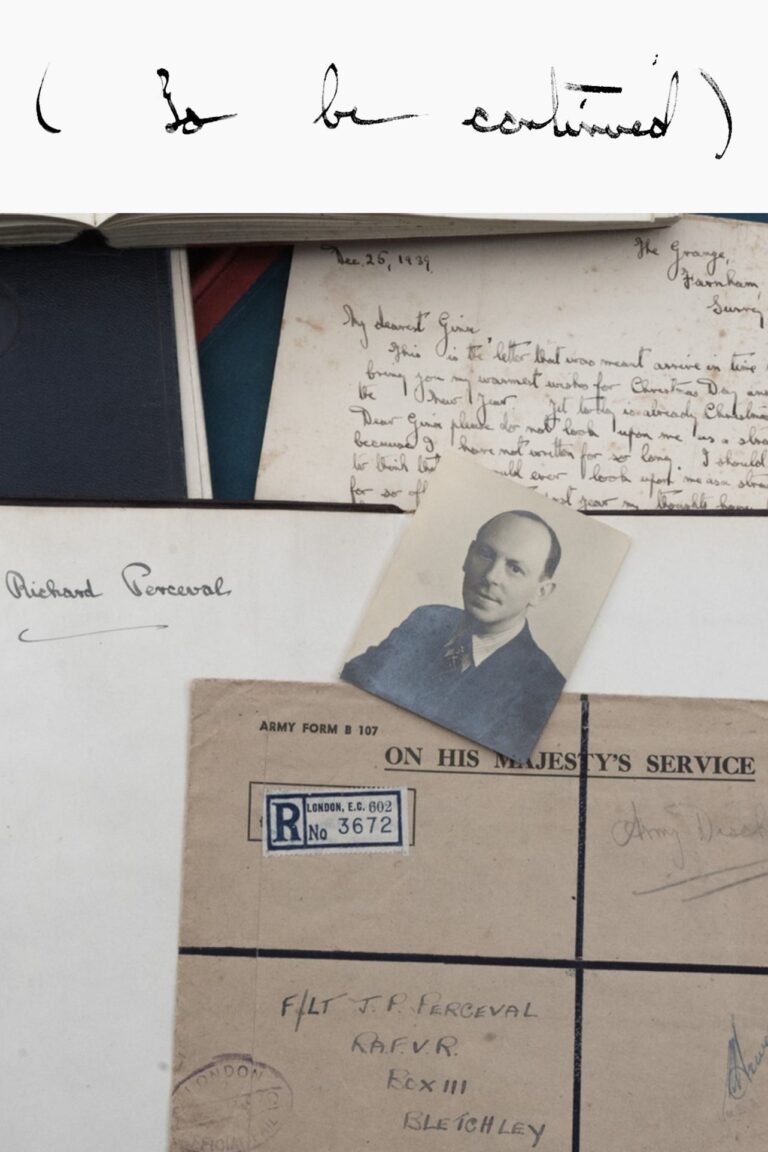 ( To be continued )
Dec. 26, 1939
The Grange,
Farnham,
Surrey
My dearest Gina
This is the letter that was meant arrive in time
bring you my warmest wishes for Christmas Day and
the New Year. Yet today is already Christmas
Dear Gina please do not look upon me as a
because I have not written for so long. I should
to think ever look upon me as a
for so last year my thoughts have
Richard Perceval
ARMY FORM B 107
ON HIS MAJESTY'S SERVICE
R
LONDON, E.C. 602
No 3672
Army
F/LT J. P. PERCEVAL
R.A.F.V.R.
BOX 111
BLETCHLEY
LONDON